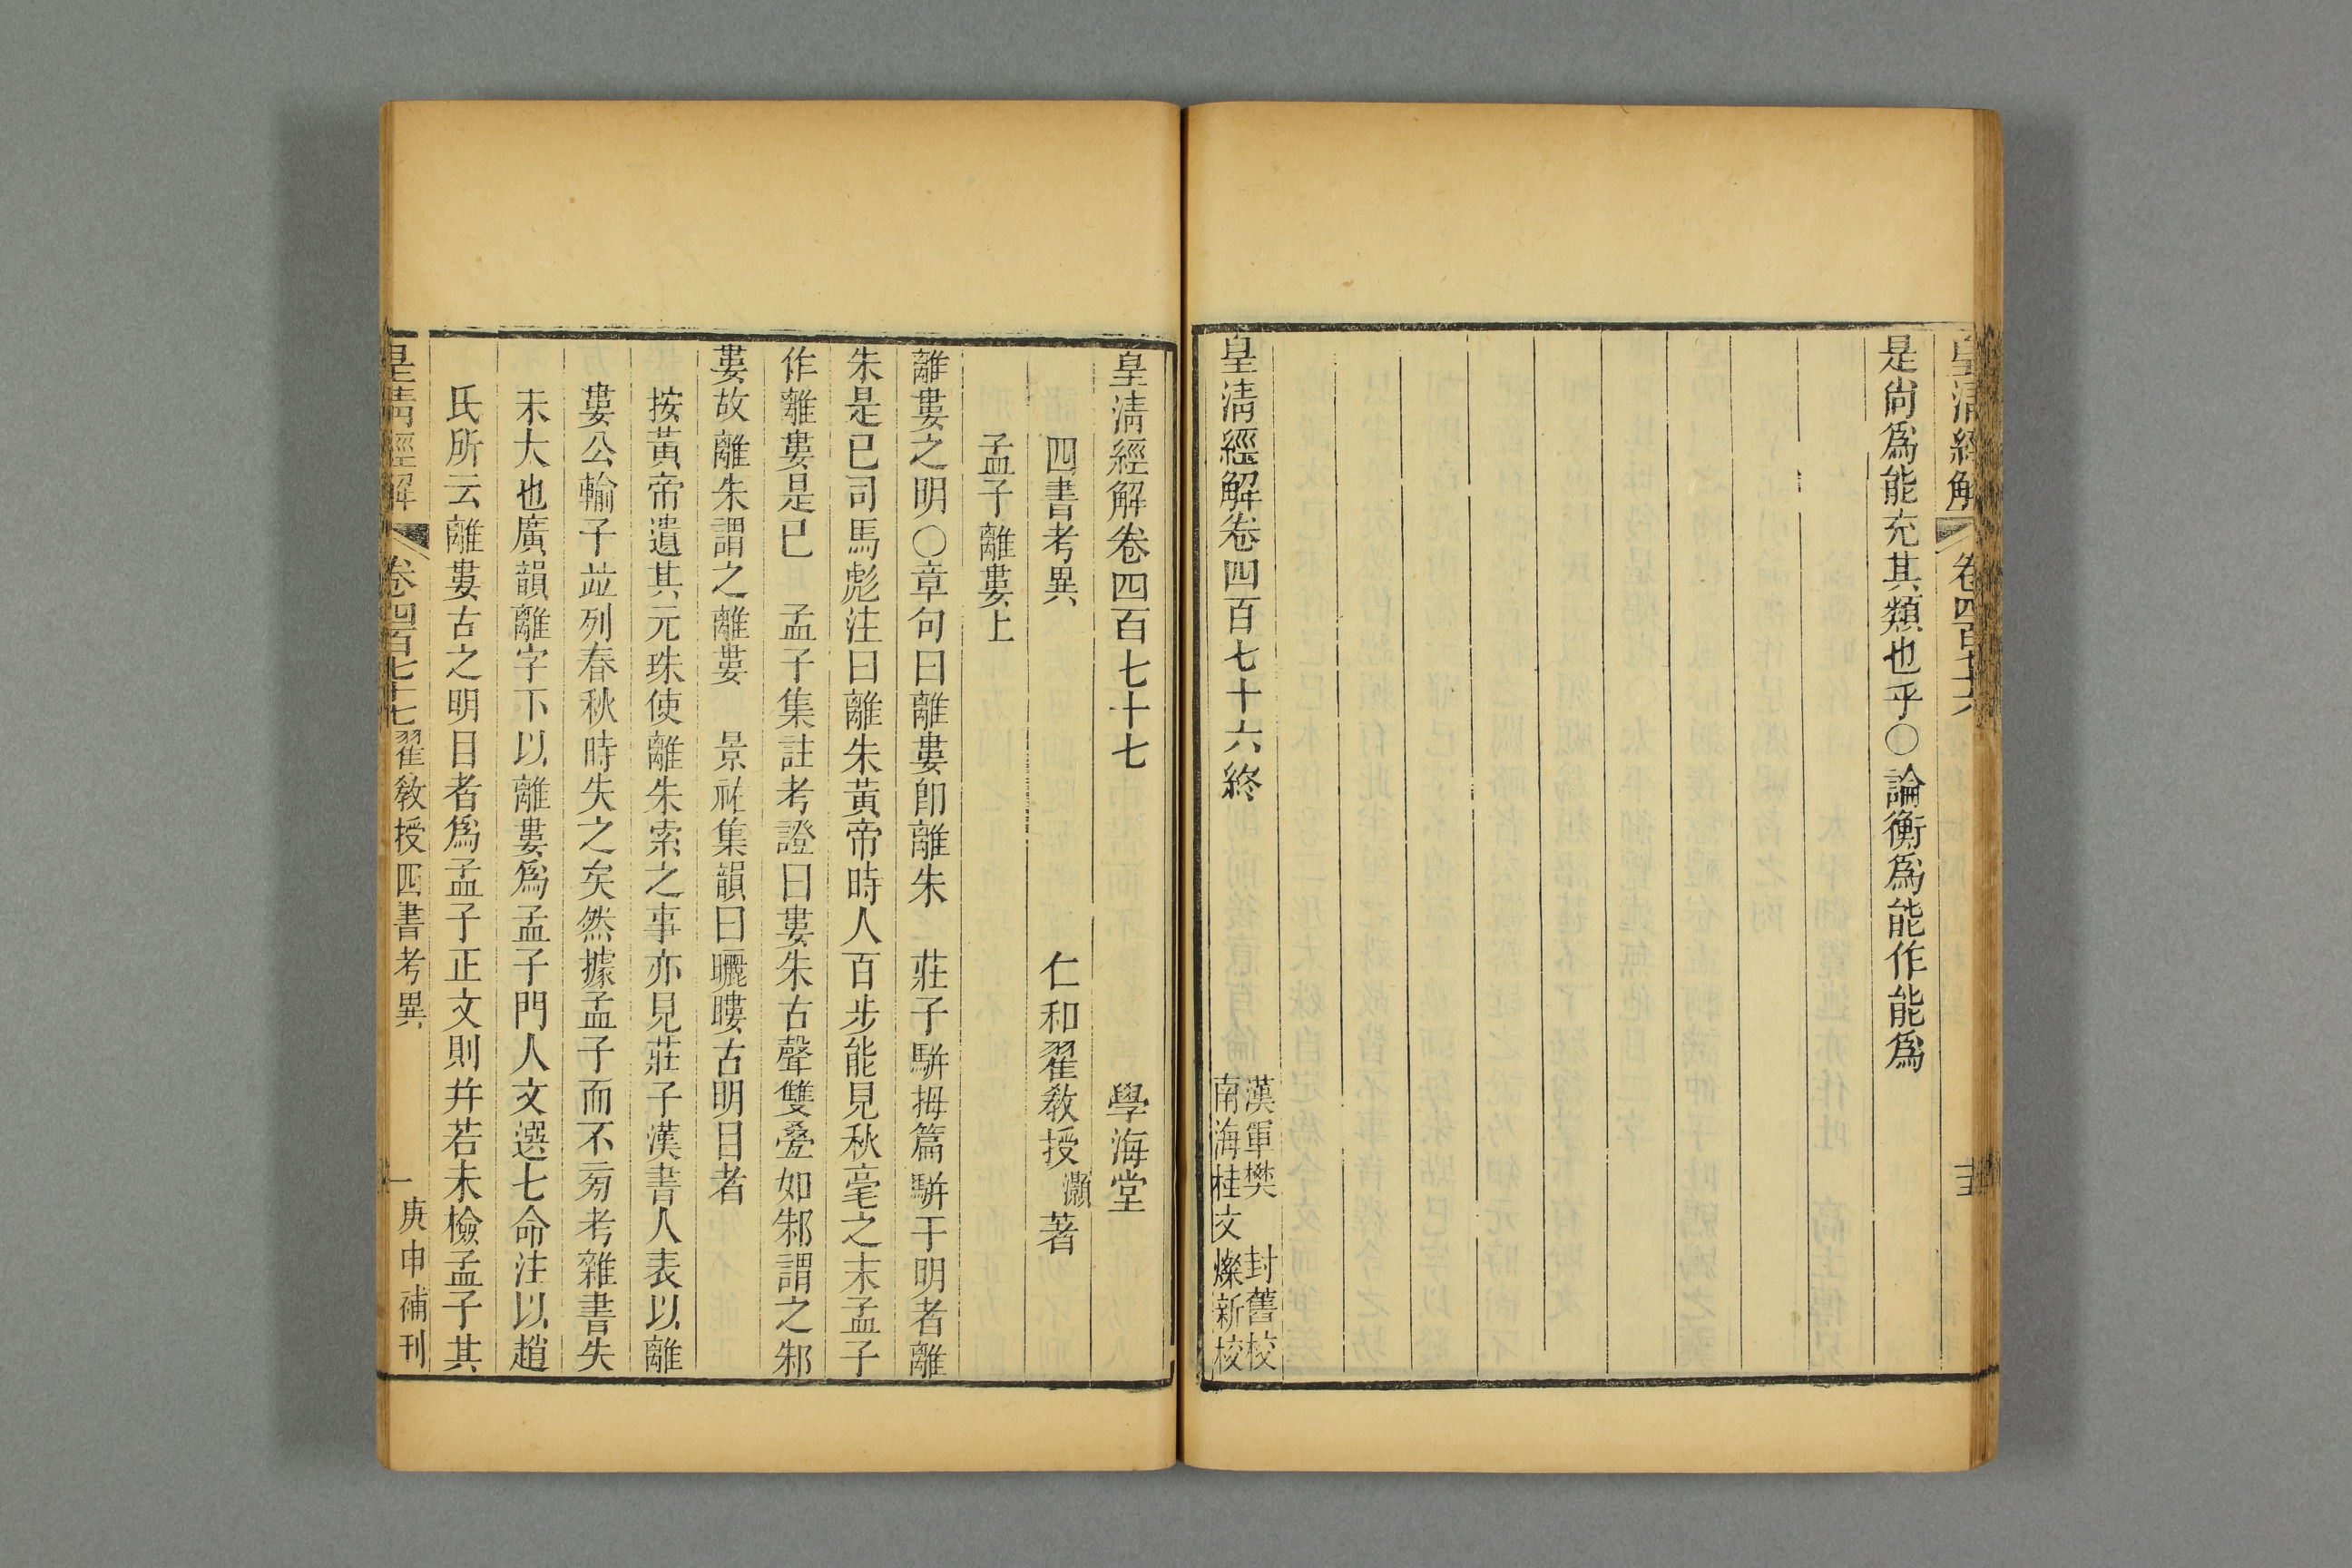 皇清經解
卷四百七十六
是尙爲能充其類也乎○論衡爲能作能爲
皇清經解卷四百七十六終
漢軍樊封舊校
南海桂文燦新校
皇清經解卷四百七十七
學海堂
四書考異
仁和翟敎授灝著
孟子離婁上
離婁之明○章句曰離婁卽離朱　莊子駢拇篇駢于明者離
朱是已司馬彪注曰離朱黃帝時人百步能見秋毫之末孟子
作離婁是已　孟子集註考證曰婁朱古聲雙叠如邾謂之邾
婁故離朱謂之離婁　景祐集韻曰矖瞜古明目者
按黃帝遺其元珠使離朱索之事亦見莊子漢書人表以離
婁公輸子竝列春秋時失之矣然據孟子而不旁考雜書失
未大也廣韻離字下以離婁爲孟子門人文選七命注以趙
氏所云離婁古之明目者爲孟子正文則幷若未檢孟子其
皇清經解
卷四百七十七
翟敎授四書考異
一
庚申補刊